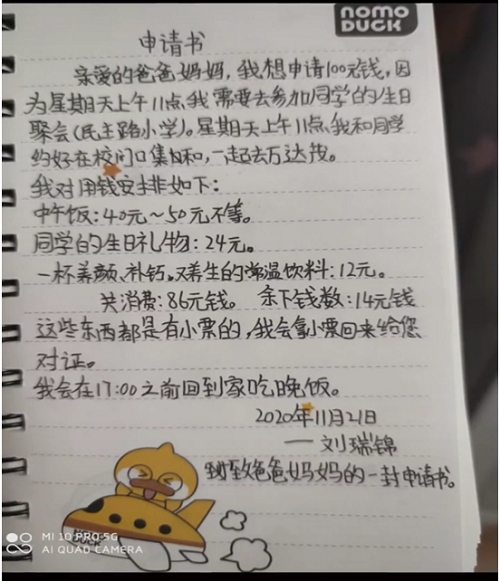 nomo
DUCK
申请书
亲爱的爸爸妈妈，我想申请100元钱，因
为星期天上午11点，我需要去参加同学的生日
聚会(民主路小学)。星期天上午11点，我和同学
约好在校门口集合，一起去万达
我对用钱安排如下：
中午饭：40元～50元不等。
同学的生日礼物：24元。
一杯养颜、补钙、又养生的常温饮料：12元。
共消费：86元钱。 余下钱数：14元钱
这些东西都是有小票的，我会拿小票回来给您
对证。
我会在17:00之前回到家吃晚饭。
2020年11月21日
——刘瑞锦
致爸爸妈妈的一封申请书。
DUCK
MI 10 PRO·5G
AI QUAD CAMERA